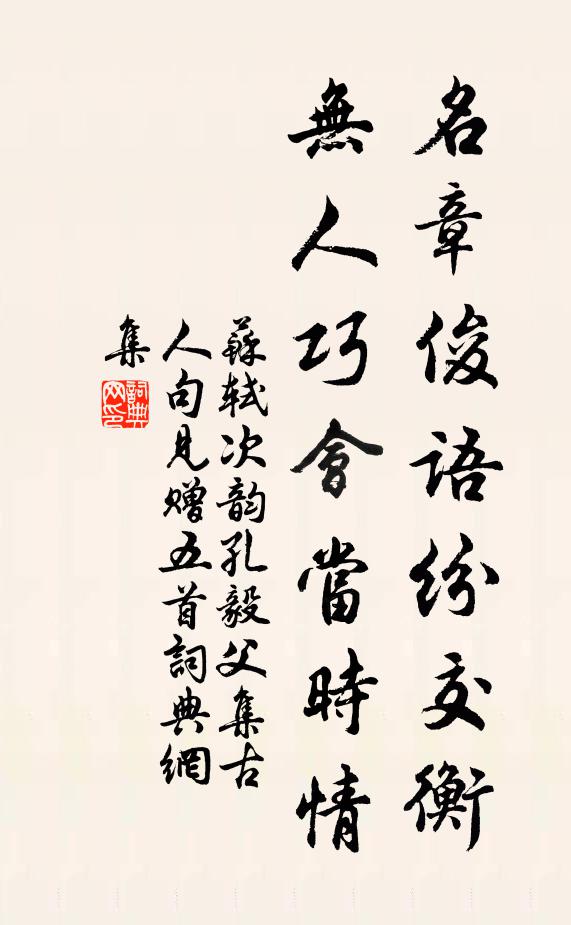 名章俊語紛交衡
無人巧會當時情
蘇軾次韵孔毅父集古
人句見赠五首詞典網
集
詞典
网印